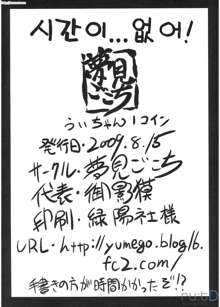 시간이...없어!
夢見ごこち
ういちゃん1コイン
発行日・2009.8.15
サークル・夢見ごこち
代表・御影獏
印刷・緑陽社様
URL・http://yumego.blog16.
fc2.com/
手書きの方が時間かかったぞ!?